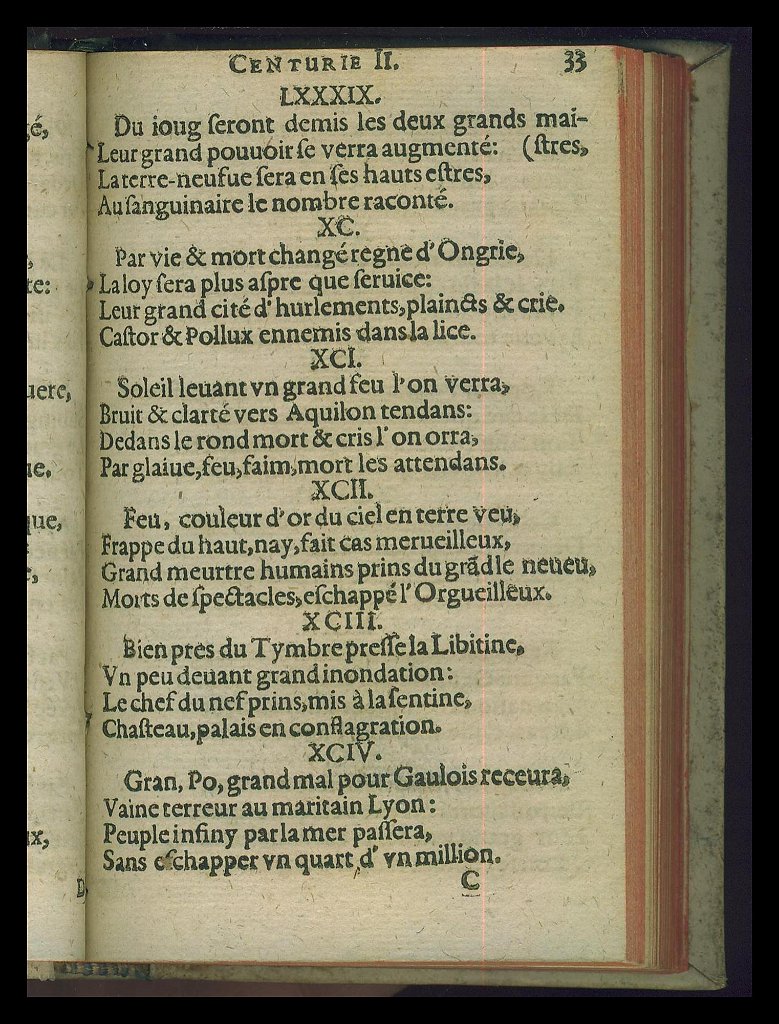 CENTURIE II. 33
LXXXIX.
Du ioug ſeront demis les deux grands mai-
Leur grand pouuoir ſe verra augmenté: (ſtres,
La terre-neufue ſera en ſes hauts eſtres,
Au ſanguinaire le nombre raconté.
XC.
Par vie & mort changé regne d'Ongrie,
La loy ſera plus aſpre que ſeruice:
Leur grand cité d'hurlements, plaincts & crie.
Caſtor & Pollux ennemis dans la lice.
XCI.
Soleil leuant vn grand feu l'on verra,
Bruit & clarté vers Aquilon tendans:
Dedans le rond mort & cris l'on orra,
Par glaiue, feu, faim, mort les attendans.
XCII.
Feu, couleur d'or du ciel en terre veu,
Frappe du haut, nay, fait cas merueilleux,
Grand meurtre humains prins du grãd le neueu,
Morts de ſpectacles, eſchappé l'Orgueilleux.
XCIII.
Bien pres du Tymbre preſſe la Libitine,
Vn peu deuant grand inondation:
Le chef du nef prins, mis à la ſentine,
Chaſteau, palais en conflagration.
XCIV.
Gran, Po, grand mal pour Gaulois receura,
Vaine terreur au maritain Lyon:
Peuple infiny par la mer paſſera,
Sans eſchapper vn quart d'vn million.
C